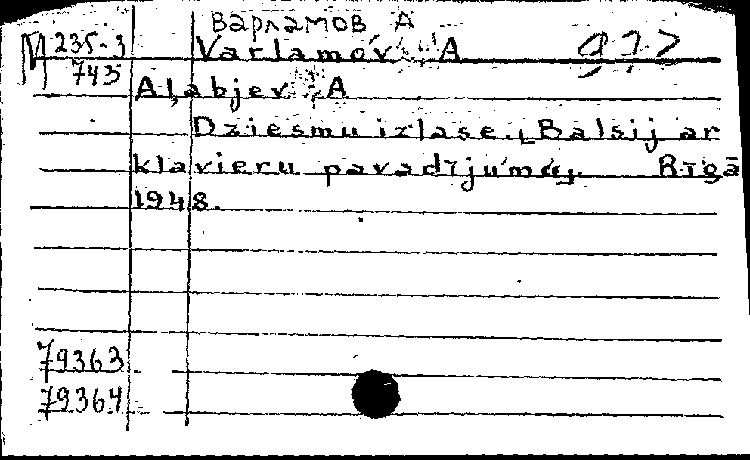 Варламов А
M 235-3 Varlamov A
745
Aļabjev A
Dziesmu izlase. [Balsij ar
klavieru pavadījumu]. Rīgā
1948.
79363
79364